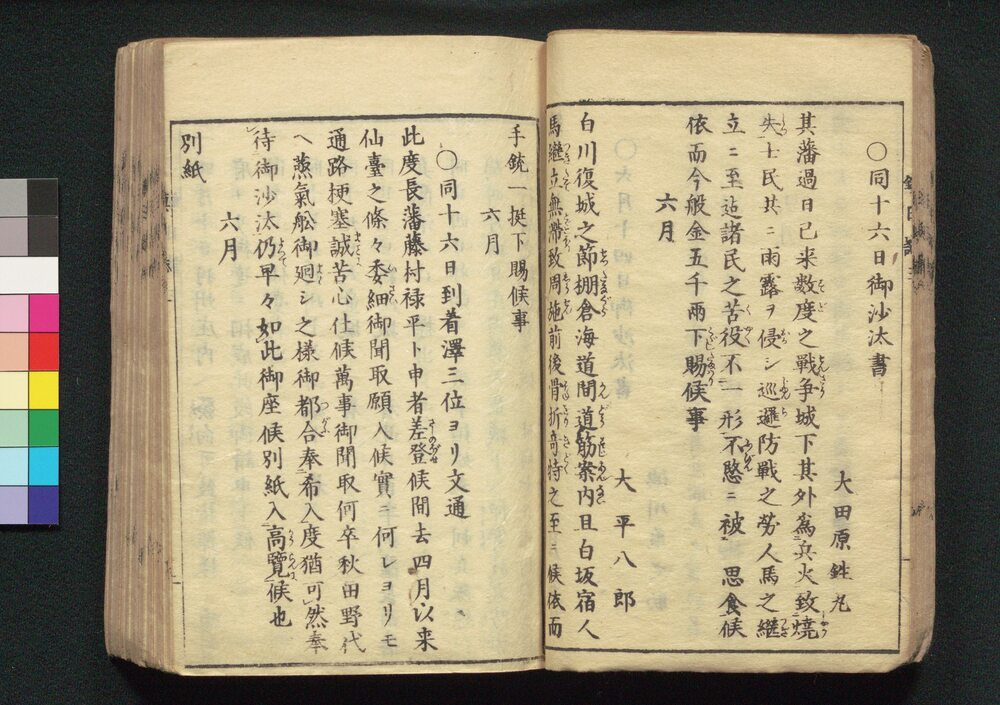 〇同十六日御沙汰書
大田原銈丸
其藩過日已来数度之戦争城下其外為兵火致焼
失士民共ニ雨露ヲ侵シ巡邏防戦之労人馬之継
立ニ至迠諸民之苦役不一形不愍ニ被　思食候
依而今般金五千両下賜候事
六月
大平八郎
白川復城之節棚倉海道間道筋案内且白坂宿人
馬継立無滞致周旋前後骨折奇特之至ニ候依而
手銃一挺下賜候事
六月
〇同十六日到着澤三位ヨリ文通
此度長藩藤村禄平ト申者差登候間去四月以来
仙臺之條々委細御聞取願入候實ニ何レヨリモ
通路梗塞誠苦心仕候萬事御聞取何卒秋田野代
ヘ蒸氣舩御廻シ之様御都合奉希入度猶可然奉
待御沙汰仍早々如此御座候別紙入高覽候也
六月
別紙